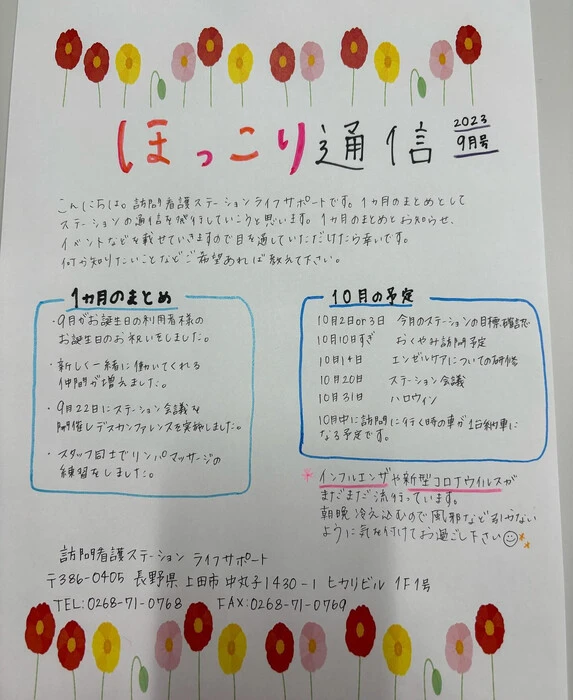 ほっこり通信
2023
9月号
こんにちは。訪問看護ステーションライフサポートです。1ヵ月のまとめとして
ステーションの通信を発行していこうと思います。1ヵ月のまとめとお知らせ、
イベントなどを載せていきますので目を通していただけたら幸いです。
何か知りたいことなどご希望あれば教えて下さい。
1ヵ月のまとめ
・9月がお誕生日の利用者様の
お誕生日のお祝いをしました。
・新しく一緒に働いてくれる
仲間が増えました。
・9月22日にステーション会議を
開催しデスカンファレンスを実施しました。
・スタッフ同士でリンパマッサージの
練習をしました。
10月の予定
10月2日or3日 今月のステーションの目標確認
10月10日すぎ おくやみ訪問予定
10月14日 エンゼルケアについての研修
10月20日 ステーション会議
10月31日 ハロウィン
10月中に訪問に行く時の車が1台納車に
なる予定です。
*インフルエンザや新型コロナウイルスが
まだまだ流行っています。
朝晩冷え込むので風邪など引かない
ように気を付けてお過ごし下さい
訪問看護ステーション ライフサポート
〒386-0405 長野県上田市中丸子1430-1 ヒカリビル 1F1号
TEL:0268-71-0768 FAX:0268-71-0769